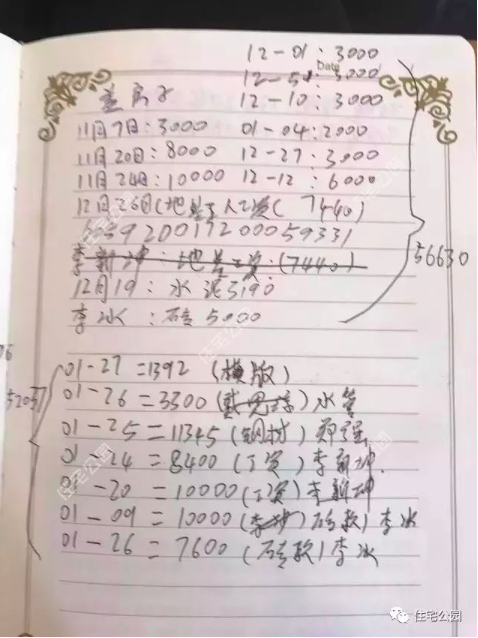 12-01:3000
Date
12-5:3000
12-10:3000
盖房子
11月7日:3000 01-04:2000
11月20日:8000 12-27:3000
11月24日:10000 12-12:6000
12月26日(地基人工资(7440)
65920017200059331
李新坤:地基工资:(7440)
12月19:水泥5190
李冰:砖5000
56630
01-27=1392(模版)
01-26=3300 水管
01-25=11345(钢材)郑强
01-24=8400(工资)李新坤
01-20=10000(工资)李新坤
01-09=10000(砖款)李冰
01-26=7600(砖款)李冰
52037
住宅公园
住宅公园